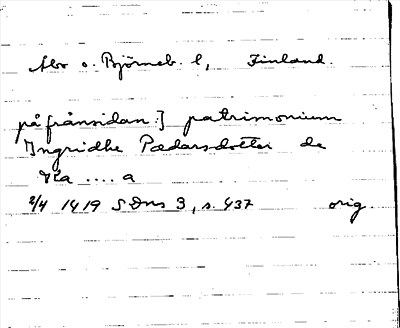 Åbo o. Björneb. l, Finland.
på [rånsidan:] patrimonium
Ingridhe Pædarsdotter de
Ka .... a
2/4 1419 SDns 3, s. 437 orig.